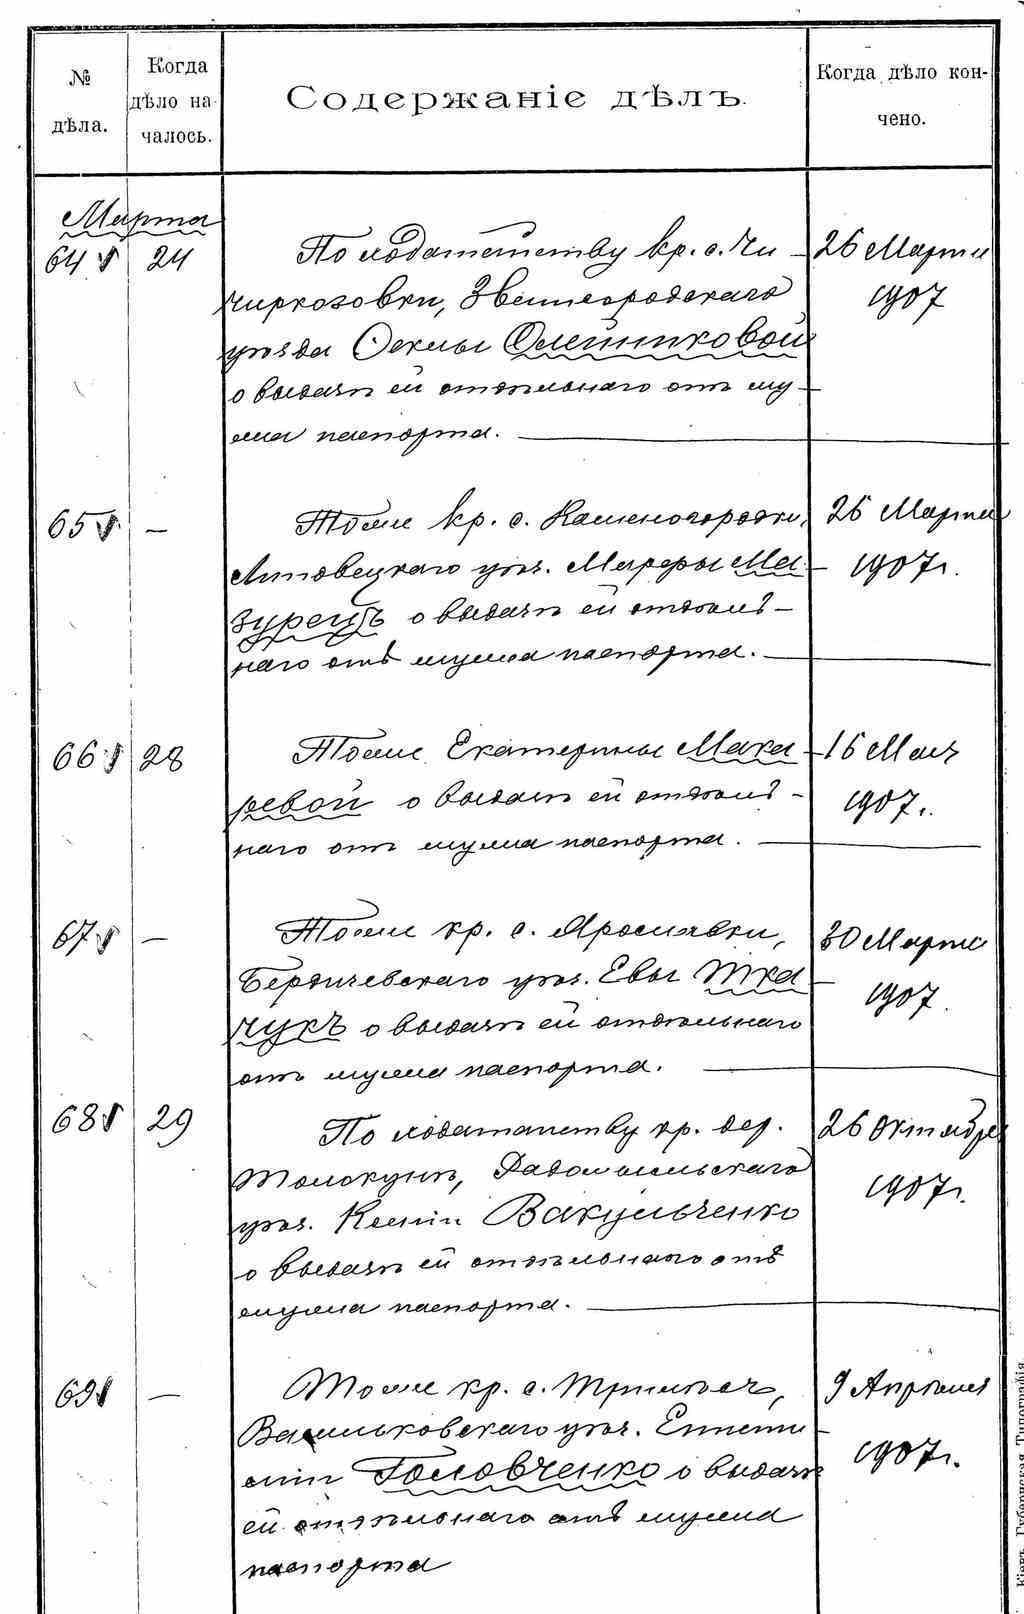 № дѣла.
Когда дѣло началось.
Содержаніе дѣлъ.
Когда дѣло кончено.
Марта
64 24 По ходатайству кр. с. Чи- 26 Марта
чиркозовки, Звенигородскаго 1907
уѣзда Феклы Олейниковой
о выдачѣ ей отдѣльнаго отъ му-
жа паспорта.
65 — Тоже кр. с. Каменогородки, 26 Марта
Липовецкаго уѣз. Марфы Ма- 1907 г.
зурецъ о выдачѣ ей отдѣль-
наго отъ мужа паспорта.
66 28 Тоже Екатерины Мака- 16 Мая
ревой о выдачѣ ей отдѣль- 1907 г.
наго отъ мужа паспорта.
67 — Тоже кр. с. Ярославки, 30 Марта
Бердичевскаго уѣз. Евы Тка- 1907
чукъ о выдачѣ ей отдѣльнаго
отъ мужа паспорта.
68 29 По ходатайству кр. дер. 26 Октября
Толокунь, Радомысльскаго 1907 г.
уѣз. Ксеніи Вакульченко
о выдачѣ ей отдѣльнаго отъ
мужа паспорта.
69 — Тоже кр. с. Трилѣсъ, 9 Апрѣля
Васильковскаго уѣз. Еписти- 1907 г.
міи Головченко о выдачѣ
ей отдѣльнаго отъ мужа
паспорта
Кіевъ. Губернская Типографія.